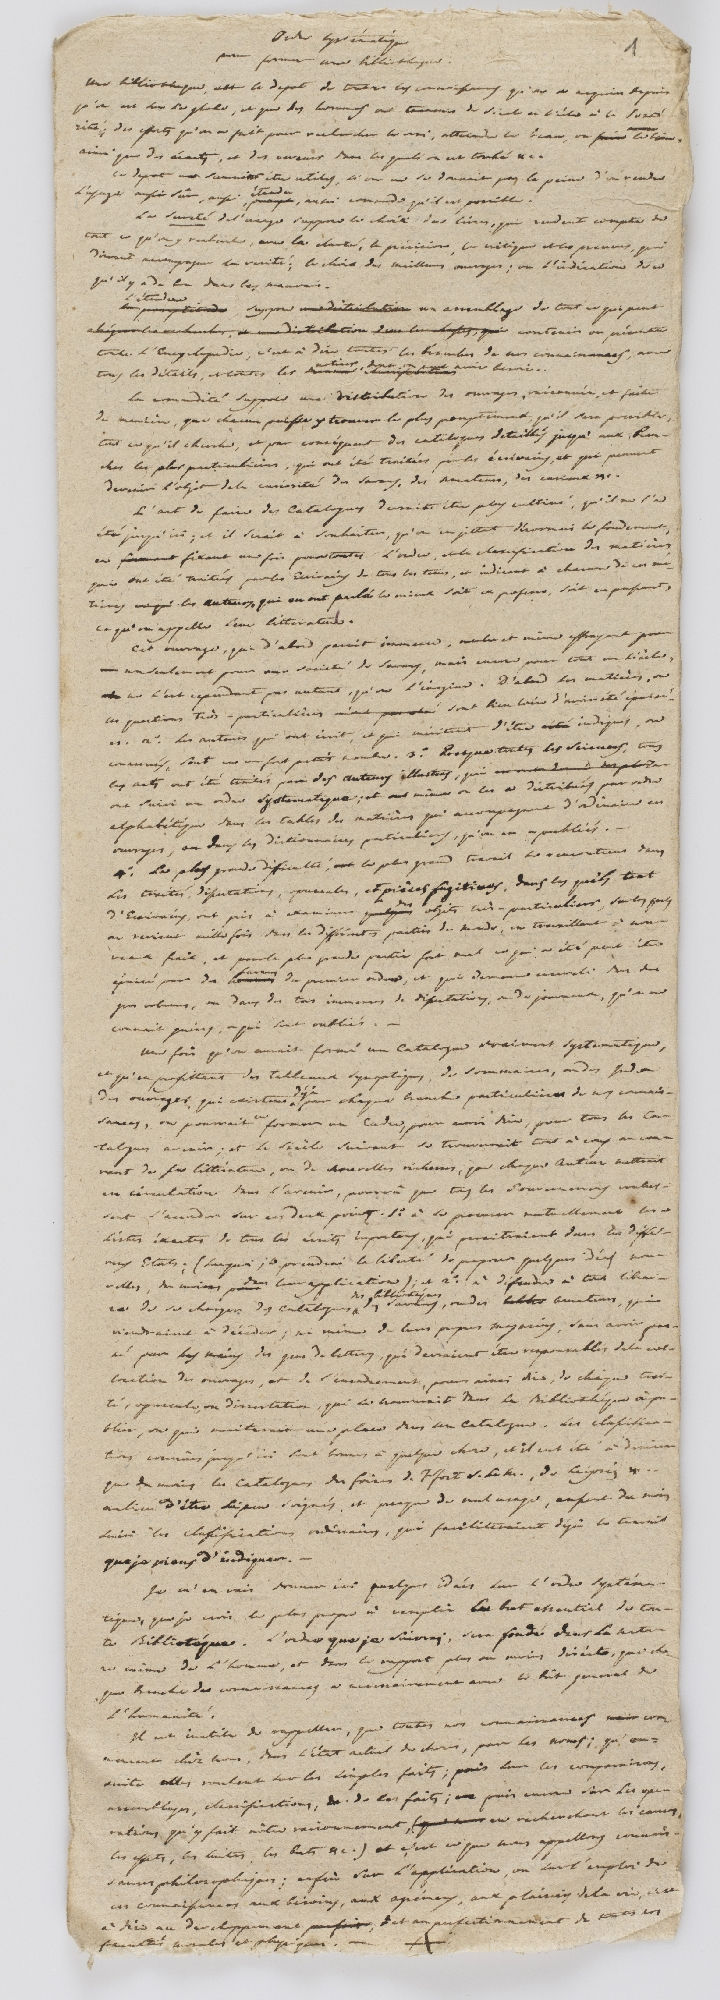 Ordre systématique
pour former une bibliothèque.
1
Une bibliothèque est le depot de toutes les connoissances qu'on a acquises depuis
qu'on est sur le globe, et que des hommes ont
rité; des efforts qu'on a fait pour rechercher le vrai, atteindre le beau, ou le bien,
ainsi que des écarts, et des erreurs dans les quels on est tombé &c.
Ce depot ne sauroit être utile, si on ne se donnoit pas la peine d'en rendre
l'usage aussi sûr, aussi étendu, aussi commode qu'il est possible.
La sureté de l'usage suppose le choix des livres, qui rendent compte de
tout ce qu'on y recherche, avec la clarté, la précision, la critique et les preuves, qui
doivent accompagner la verité; le choix des meilleurs ouvrages; ou l'indication de ce
qu'il y a de bon dans les mauvais.
L'étendue suppose un assemblage de tout ce qui peut
contenir ou présenter
toute l'Encyclopédie, c'est à dire toutes les branches de nos connoissances, avec
tous les détails, et toutes les notices, dont on peut avoir besoin.
La commodité suppose une distribution des ouvrages, raisonnée, et faite
de manière, que chacun puisse y trouver le plus promptement qu'il sera possible,
tout ce qu'il cherche, et par conséquent des catalogues détaillés jusqu'aux bran-
ches les plus particulières, qui ont été traitées par les écrivains, et qui peuvent
devenir l'objet de la curiosité des savans, des amateurs, des curieux &c.
L'art de faire des Catalogues devroit être plus cultivé, qu'il ne l'a
été jusqu'ici; et il seroit à souhaiter, qu'on en jettat désormais les fondemens,
en fixant une fois pour toutes l'ordre, et la classification des matières,
qui ont été traitées par les Ecrivains de tous les tems, et indicant à chacune de ces ma-
tières les auteurs, qui en ont parlé le mieux soit ex professo, soit en passant,
ce qu'on appelle leur littérature.
Cet ouvrage, qui d'abord paroit immense, et même effrayant pour
non seulement pour une société de Savans, mais encore pour tout un siècle,
ne l'est cependant pas autant, qu'on l'imagine. D'abord les matières, ou
les questions très-particulières sont bien loin d'avoir été épuisé-
es. 2°. les auteurs qui ont écrit, et qui méritent d'être indiqués, ou
connus, sont en un fort petit nombre. 3°. Presque toutes les sciences, tous
les arts ont été traités par des auteurs illustres, qui
ont suivi un ordre systematique; et ont même ou les a distribués par ordre
alphabétique dans les tables des matières qui accompagnent d'ordinaire ces
ouvrages, ou dans les dictionnaires particuliers, qu'on en a publiés. —
4°. La plus grande difficulté, le plus grand travail se rencontrent dans
les traités, dissertations, opuscules, et pièces fugitives, dans les quels tant
d'Ecrivains ont pris à examiner des objets très-particuliers, sur les quels
on revient mille fois dans les différentes parties du monde, en travaillant à nou-
veaux fraix, et pour la plus grande partie fort mal ce qui a été peut être
épuisé par des savans de premier ordre, et qui demeure enseveli dans des
gros volumes, ou dans des tas immenses de dissertations, ou de journaux, qu'on ne
connoit guères, ou qui sont oubliés. —
Une fois qu'on auroit formé un Catalogue vraiment systematique,
et qu'en profittant des tableaux synoptiques, des sommaires, ou des Index
des ouvrages, qui existent déjà pour chaque branche particulière de nos connois-
sances, on pourroit en former un Cadre, pour ainsi dire, pour tous les Ca-
talogues avenir; et le Siècle suivant se trouveroit tout à coup au cou-
rant de sa littérature, ou de nouvelles richesses, que chaque Auteur mettroit
en circulation dans l'avenir, pourvû que tous les Gouvernemens voulus-
sent s'accorder sur ces deux points. 1°. à se procurer mutuellement les
listes exactes de tous les écrits importans, qui paroitroient dans les diffé-
rens Etats. (sur quoi je prendrai la liberté de proposer quelques idées nou-
velles, du moins dans leur application); et 2°. à défendre à tout librai-
re de se charger des Catalogues des bibliothèques des savans, ou des amateurs, qui
viendroient à décéder; ni même de leurs propres magasins, sans avoir pas-
sé par les mains des gens de lettres, qui devroient être responsables de la col-
location des ouvrages, et de l'enrolement, pour ainsi dire, de chaque trai-
té, opuscule, ou dissertation, qui se trouveroit dans la Bibliothèque à pu-
blier, ou qui mériteroit une place dans un Catalogue. Les classifica-
tions connues jusqu'ici sont bonnes à quelque chose, et il eut été à désirer
que du moins les Catalogues des foires de Francfort s. le M., de Leipsig &c.
au lieu d'être si peu soignés, et presque de nul usage, eussent du moins
suivi les classifications ordinaires, qui faciliteroient déjà le travail
que je viens d'indiquer. —
Je m'en vais donner ici quelques idées sur l'ordre systéma-
tique, que je crois le plus propre à remplir le but essentiel de tou-
te Bibliothèque. L'ordre que je suivrai, sera fondé dans la natu-
re même de l'homme, et dans le rapport plus ou moins direct, que cha-
que branche des connoissances a necessairement avec le but general de
l'humanité.
Il est inutile de rappeller, que toutes nos connoissances com-
mencent chez nous, dans l'état actuel des choses, par les noms; qu'en-
suite elles roulent sur les simples faits; puis sur les comparaisons,
assemblages, classifications, &c. de ces faits; puis encore sur les opé-
rations qu'y fait nôtre raisonnement, (en recherchant les causes,
les effets, les suites, les buts &c.) et c'est ce que nous appellons connois-
sances philosophiques; enfin sur l'application, ou sur l'emploi de
ces connoissances aux besoins, aux agrémens, aux plaisirs de la vie, c'est
à dire au developpement, et au perfectionnement de toutes nos
facultés morales et physiques. —